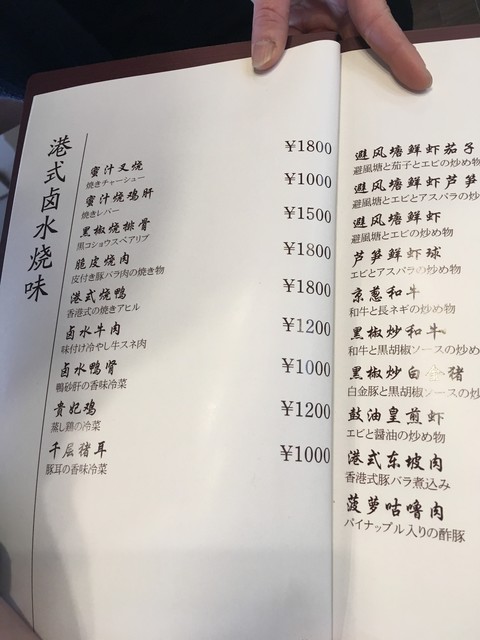 港式卤水烧味
蜜汁叉烧 ¥1800
焼きチャーシュー
蜜汁烧鸡肝 ¥1000
焼きレバー
黑椒烧排骨 ¥1500
黒コショウスペアリブ
脆皮烧肉 ¥1800
皮付き豚バラ肉の焼き物
港式烧鸭 ¥1800
香港式の焼きアヒル
卤水牛肉 ¥1200
味付け冷やし牛スネ肉
卤水鸭肾 ¥1000
鴨砂肝の香味冷菜
贵妃鸡 ¥1200
蒸し鶏の冷菜
千层猪耳 ¥1000
豚耳の香味冷菜
避风塘鲜虾茄子
避風塘と茄子とエビの炒め物
避风塘鲜虾芦笋
避風塘とエビとアスパラの炒
避风塘鲜虾
避風塘とエビの炒め物
芦笋鲜虾球
エビとアスパラの炒め物
京葱和牛
和牛と長ネギの炒め物
黑椒炒和牛
和牛と黒胡椒ソースの炒め
黑椒炒白金猪
白金豚と黒胡椒ソースの炒
鼓油皇煎虾
エビと醤油の炒め物
港式东坡肉
香港式豚バラ煮込み
菠萝咕噜肉
パイナップル入りの酢豚